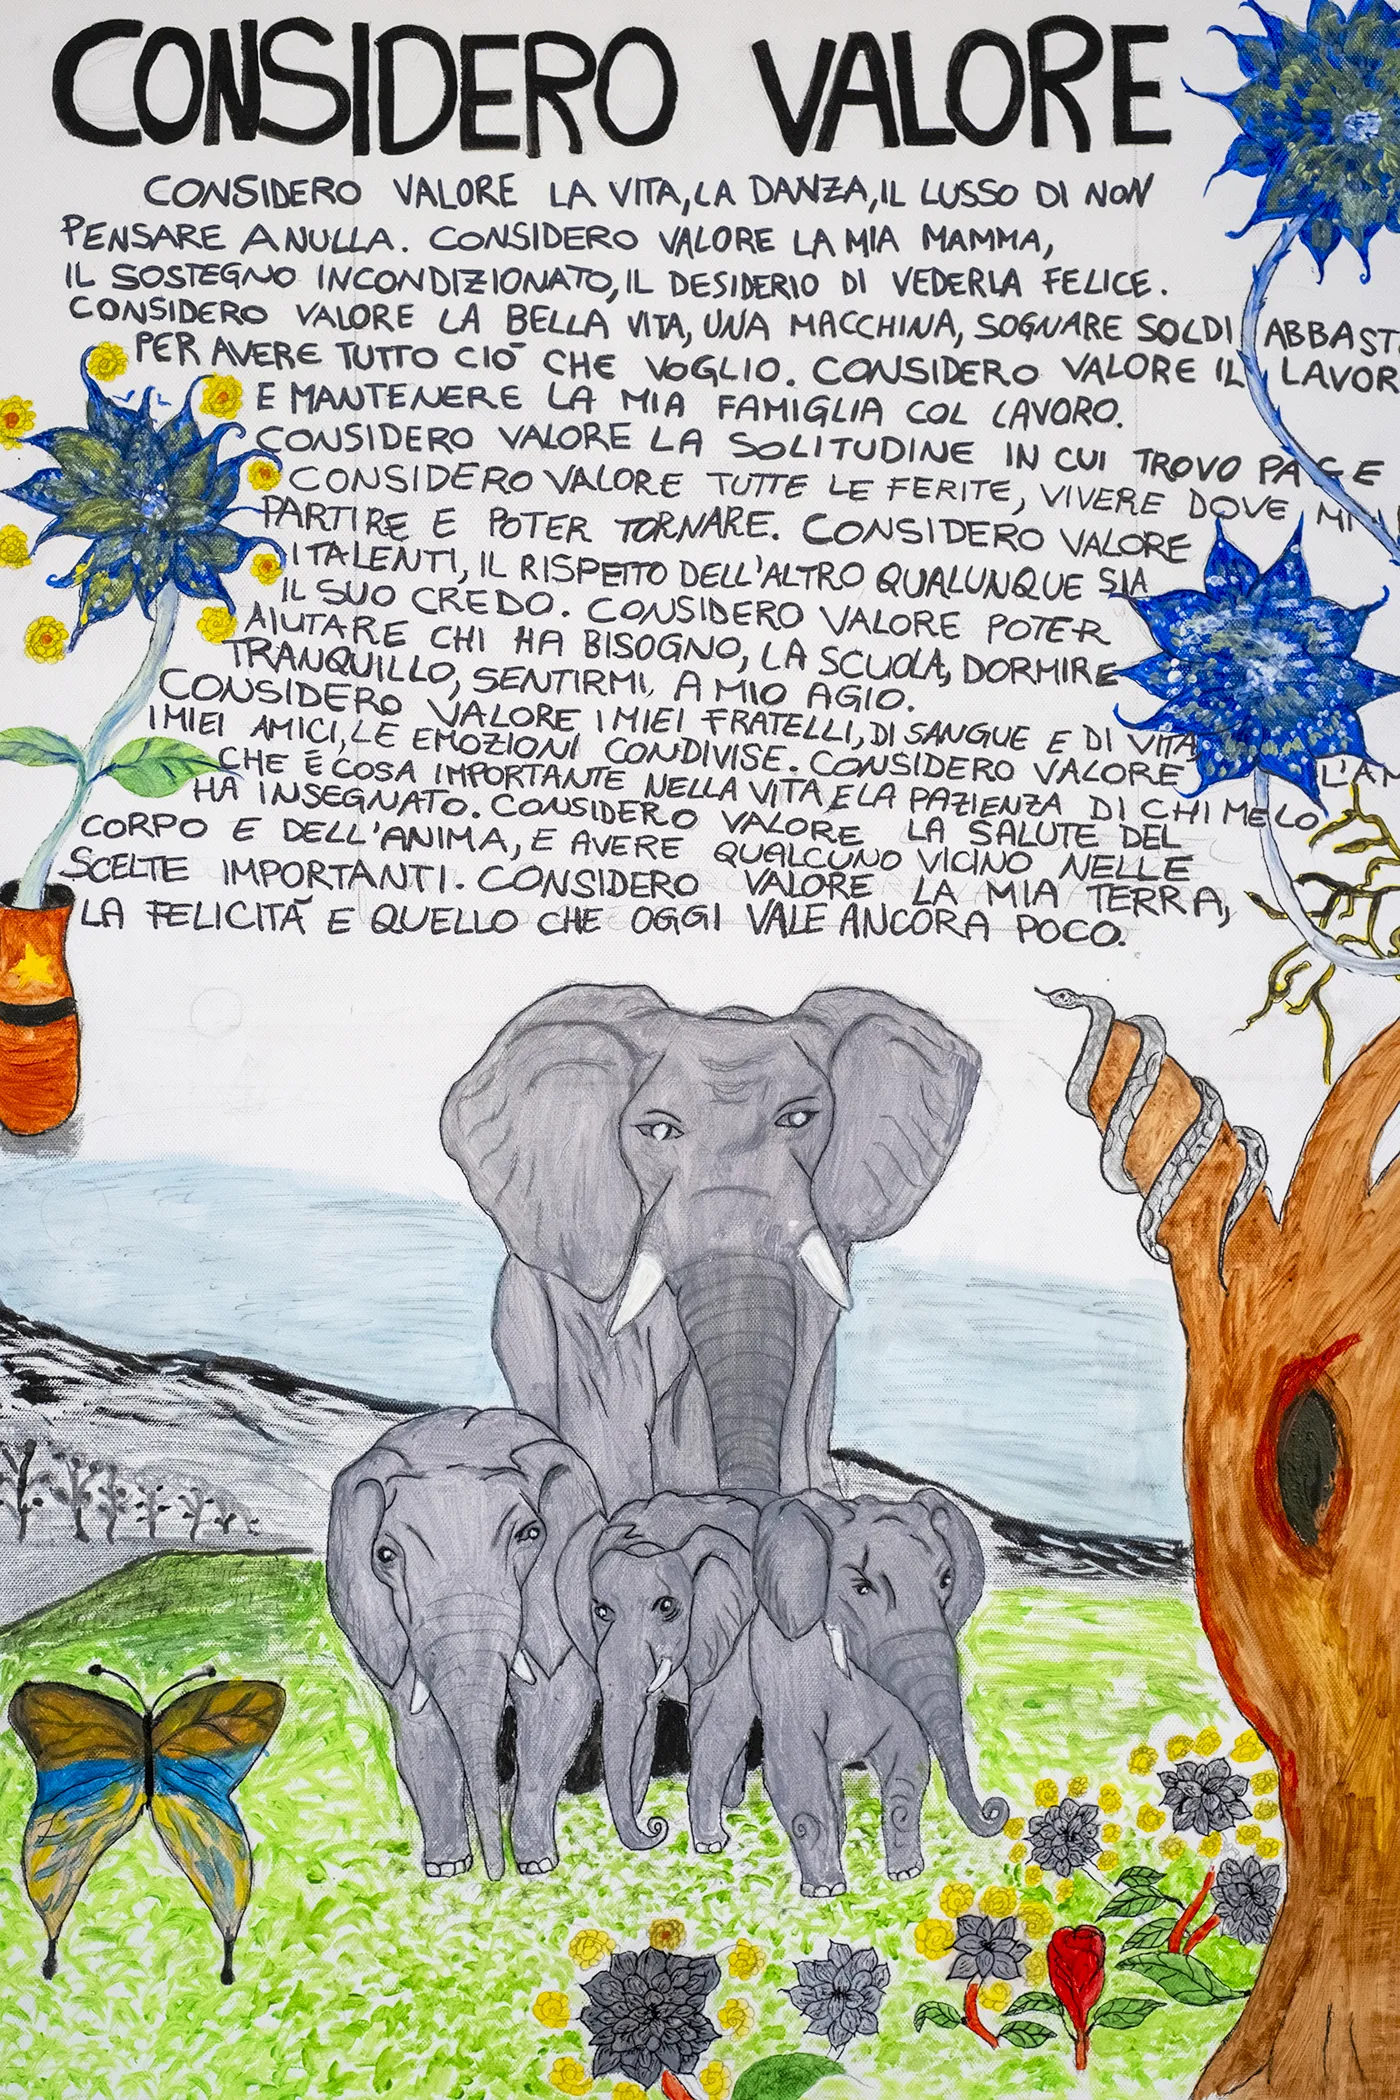 CONSIDERO VALORE
CONSIDERO VALORE LA VITA, LA DANZA, IL LUSSO DI NON
PENSARE A NULLA. CONSIDERO VALORE LA MIA MAMMA,
IL SOSTEGNO INCONDIZIONATO, IL DESIDERIO DI VEDERLA FELICE.
CONSIDERO VALORE LA BELLA VITA, UNA MACCHINA, SOGNARE SOLDI ABBAST
PER AVERE TUTTO CIÒ CHE VOGLIO. CONSIDERO VALORE IL LAVOR
E MANTENERE LA MIA FAMIGLIA COL LAVORO.
CONSIDERO VALORE LA SOLITUDINE IN CUI TROVO PACE
CONSIDERO VALORE TUTTE LE FERITE, VIVERE DOVE
PARTIRE E POTER TORNARE. CONSIDERO VALORE
I TALENTI, IL RISPETTO DELL'ALTRO QUALUNQUE SIA
IL SUO CREDO. CONSIDERO VALORE POTER
AIUTARE CHI HA BISOGNO, LA SCUOLA, DORMIRE
TRANQUILLO, SENTIRMI A MIO AGIO.
CONSIDERO VALORE I MIEI FRATELLI, DI SANGUE E DI VITA,
I MIEI AMICI, LE EMOZIONI CONDIVISE. CONSIDERO VALORE L'AM
CHE È COSA IMPORTANTE NELLA VITA E LA PAZIENZA DI CHI ME LO
HA INSEGNATO. CONSIDERO VALORE LA SALUTE DEL
CORPO E DELL'ANIMA, E AVERE QUALCUNO VICINO NELLE
SCELTE IMPORTANTI. CONSIDERO VALORE LA MIA TERRA,
LA FELICITÀ E QUELLO CHE OGGI VALE ANCORA POCO.